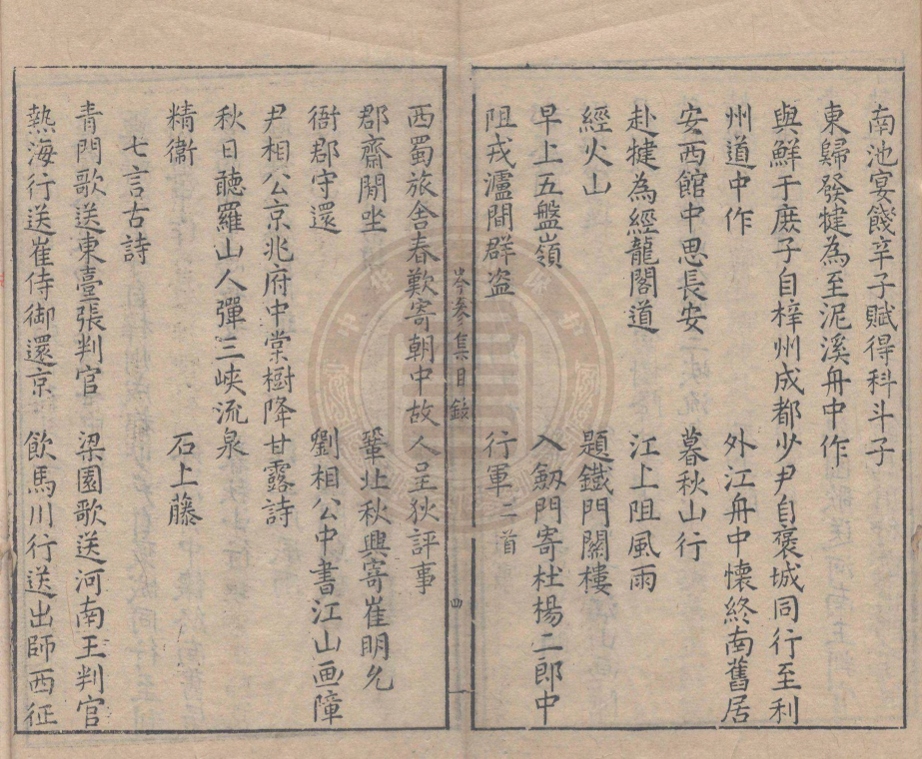 南池宴餞辛子賦得科斗子
東歸發犍為至泥溪舟中作
與鮮于庶子自梓州成都少尹自褒城同行至利
州道中作　外江舟中懷終南舊居
安西館中思長安　暮秋山行
赴犍為經龍閣道　江上阻風雨
經火山　題鐵門關樓
早上五盤嶺　入劔門寄杜楊二郎中
阻戎瀘間群盗　行軍二首
岑參集目錄　四
西蜀旅舍春歎寄朝中故人呈狄評事
郡齋閒坐　鞏北秋興寄崔明允
衙郡守還　劉相公中書江山画障
尹相公京兆府中棠樹降甘露詩
秋日聽羅山人彈三峽流泉
精衞　石上藤
七言古詩
青門歌送東臺張判官　梁園歌送河南王判官
熱海行送崔侍御還京　飲馬川行送出師西征